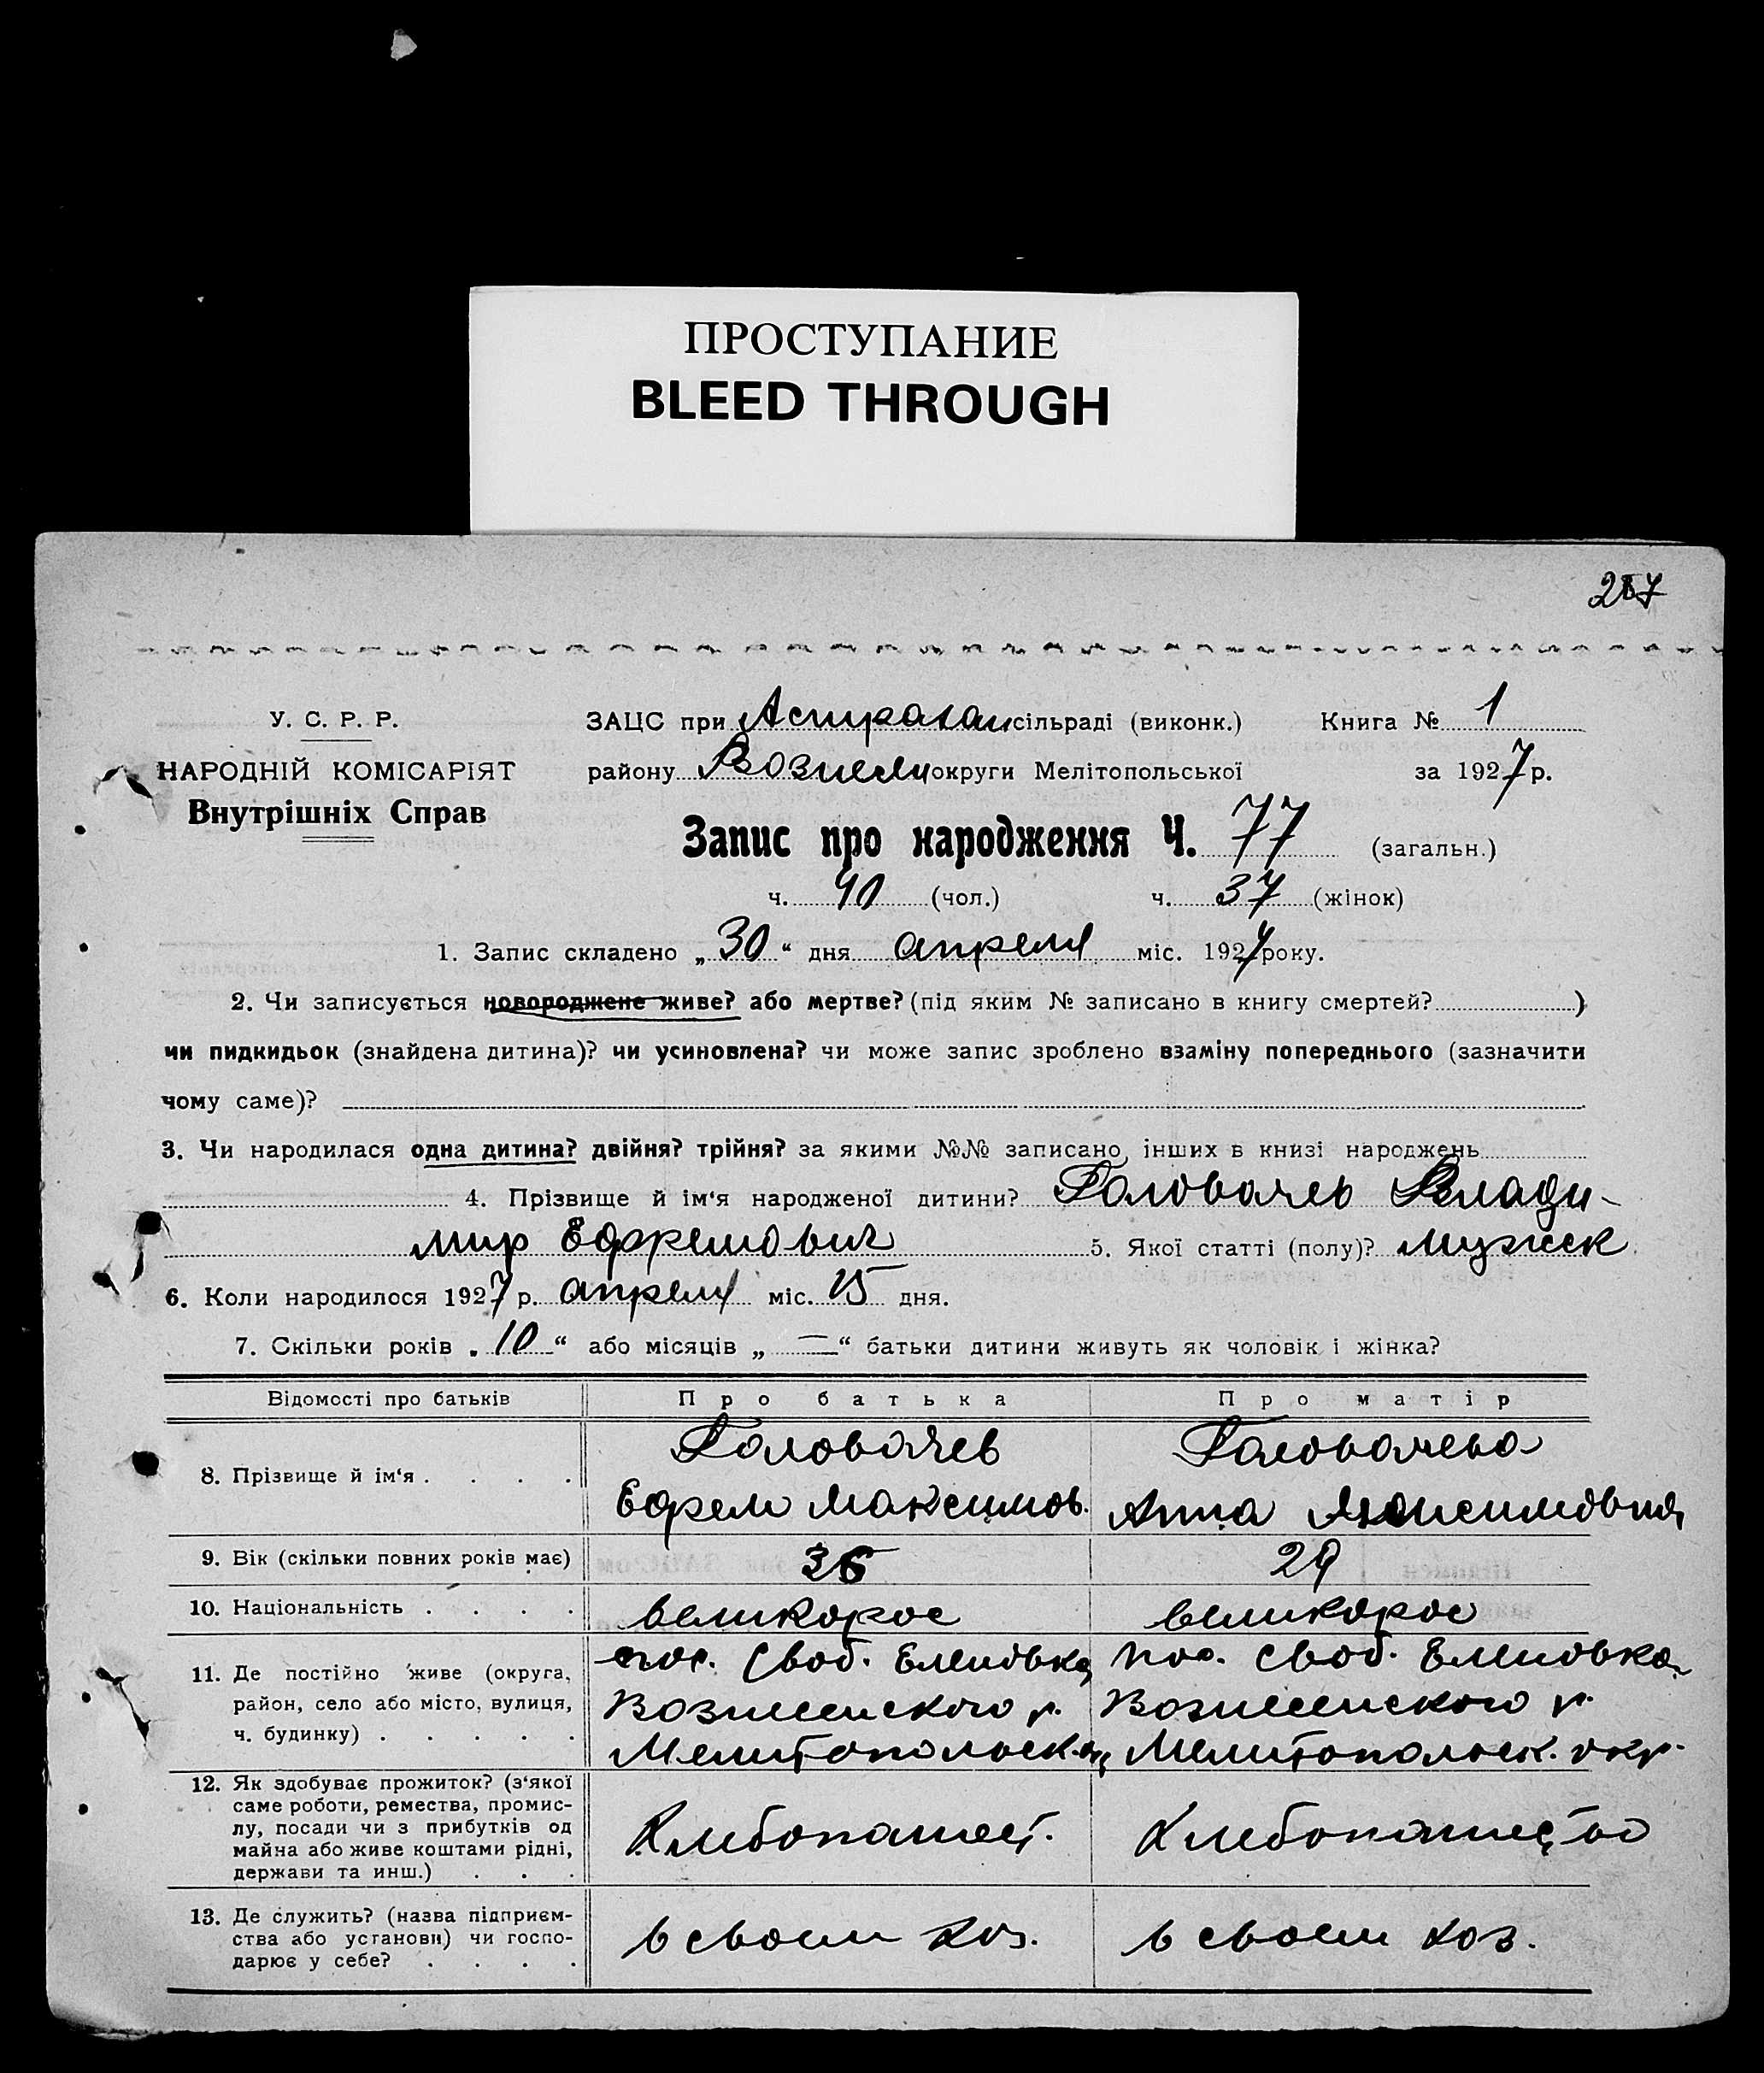 ПРОСТУПАНИЕ
BLEED THROUGH
У. С. Р. Р.
НАРОДНІЙ КОМІСАРІЯТ
Внутрішніх Справ
ЗАЦС при Астрахан сільраді (виконк.) Книга № 1
району Вознесен округи Мелітопольської за 1927 р.
Запис про народження Ч. 77 (загальн.)
ч. 40 (чол.) ч. 37 (жінок)
1. Запис складено „30“ дня апреля міс. 1927 року.
2. Чи записується новороджене живе? або мертве? (під яким № записано в книгу смертей? )
чи пидкидьок (знайдена дитина)? чи усиновлена? чи може запис зроблено взаміну попереднього (зазначити
чому саме)?
3. Чи народилася одна дитина? двійня? трійня? за якими №№ записано інших в книзі народжень
4. Прізвище й ім‘я народженої дитини? Головачев Влади-
мир Ефремович 5. Якої статті (полу)? мужск
6. Коли народилося 1927 р. апреля міс. 15 дня.
7. Скільки років „10“ або місяців „—“ батьки дитини живуть як чоловік і жінка?
Відомості про батьків Про батька Про матір
8. Прізвище й ім‘я . . . .
Головачев
Ефрем Максимов.
Головачева
Анна
9. Вік (скільки повних років має) 36 29
10. Національність . . . . великорос великорос
11. Де постійно живе (округа,
район, село або місто, вулиця,
ч. будинку) . . . . .
пос. Своб. Еленовка
Вознесенского р.
Мелитопольск.
пос. Своб. Еленовка
Вознесенского р.
Мелитопольск. окр.
12. Як здобуває прожиток? (з‘якої
саме роботи, ремества, промис-
лу, посади чи з прибутків од
майна або живе коштами рідні,
держави та инш.) . . .
Хлебопашест.
Хлебопашество
13. Де служить? (назва підприєм-
ства або установи) чи госпо-
дарює у себе? . . . .
в своем хоз.
в своем хоз.